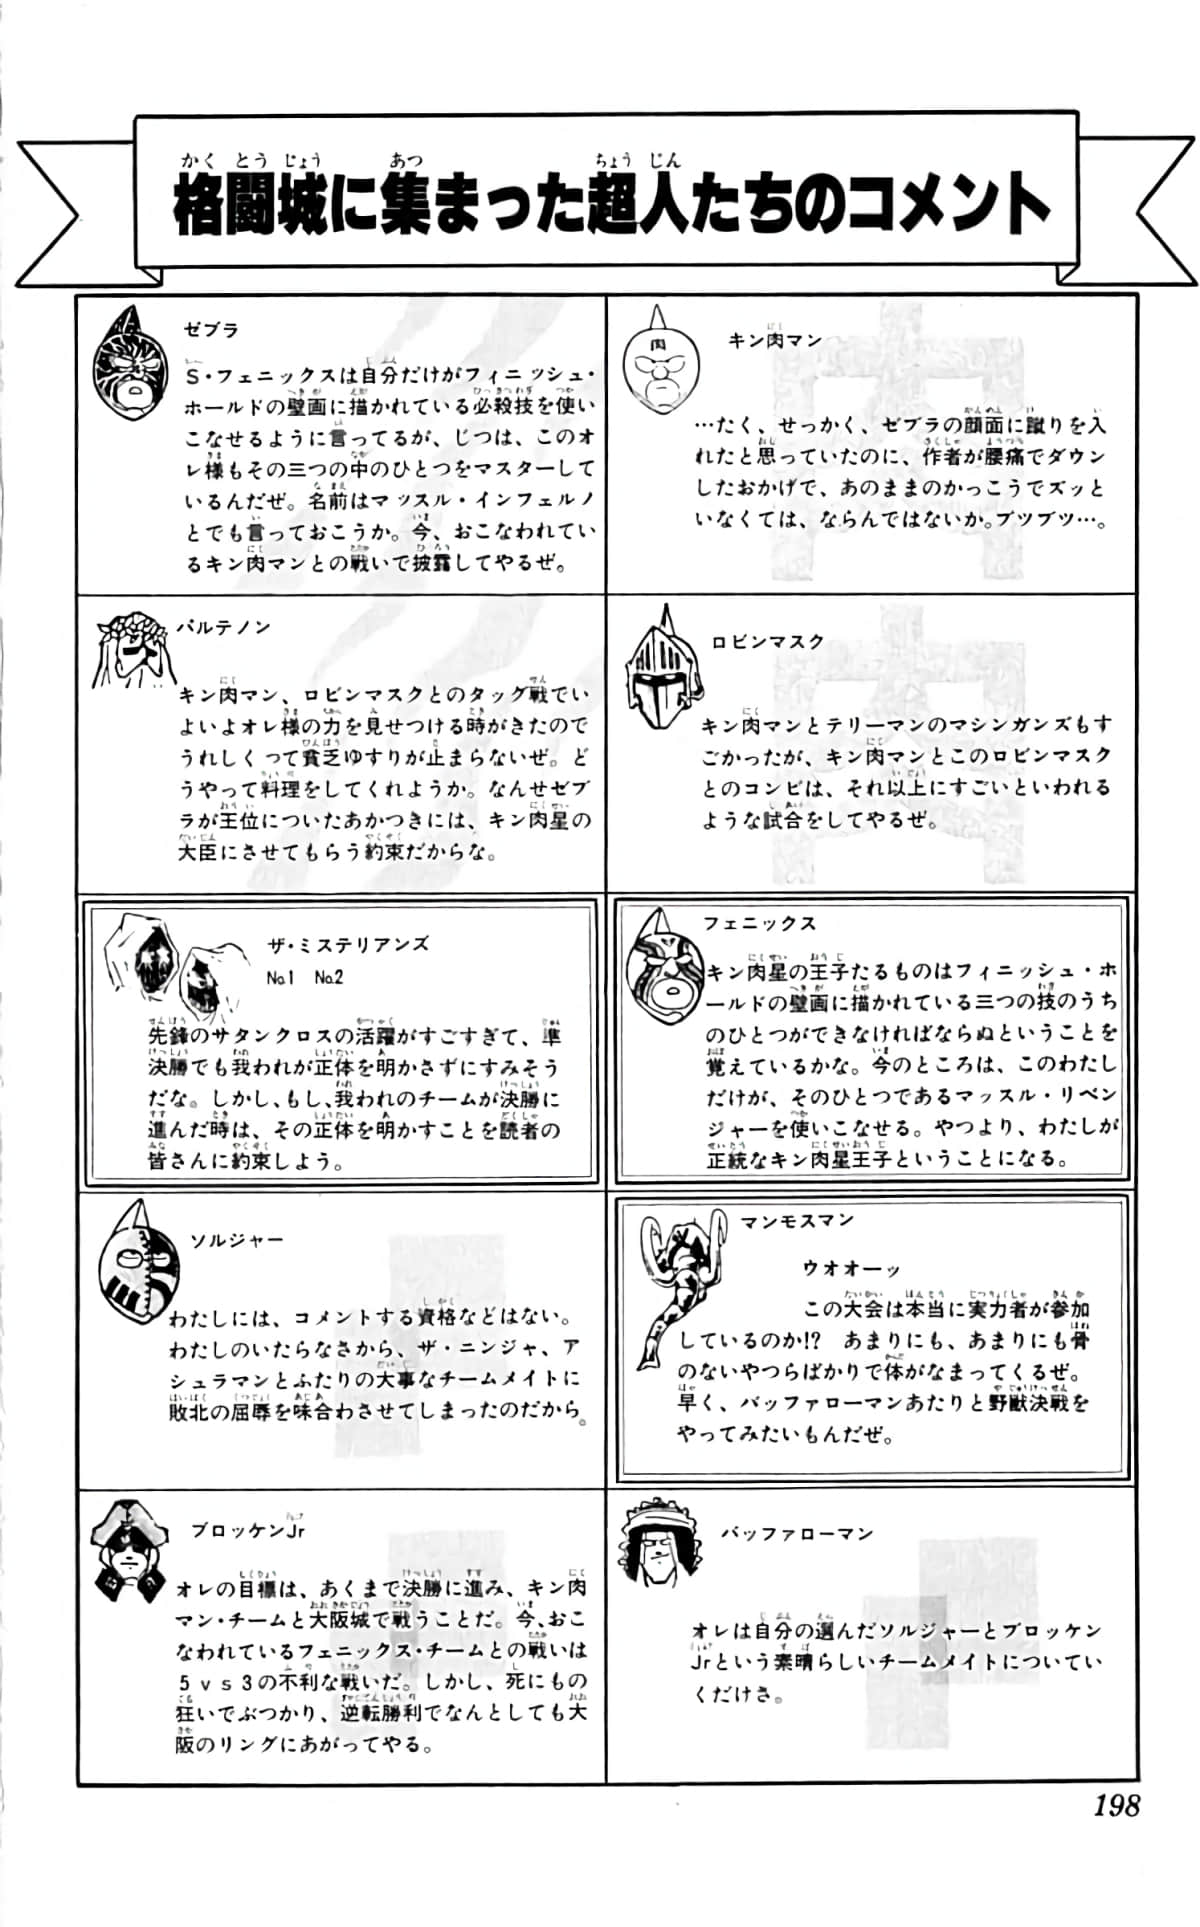 格闘城に集まった超人たちのコメント
ゼブラ
S・フェニックスは自分だけがフィニッシュ・
ホールドの壁画に描かれている必殺技を使い
こなせるように言ってるが、じつは、このオ
レ様もその三つの中のひとつをマスターして
いるんだぜ。名前はマッスル・インフェルノ
とでも言っておこうか。今、おこなわれてい
るキン肉マンとの戦いで披露してやるぜ。
キン肉マン
…たく、せっかく、ゼブラの顔面に蹴りを入
れたと思っていたのに、作者が腰痛でダウン
したおかげで、あのままのかっこうでズッと
いなくては、ならんではないか。ブツブツ…。
パルテノン
キン肉マン、ロビンマスクとのタッグ戦でい
よいよオレ様の力を見せつける時がきたので
うれしくって貧乏ゆすりが止まらないぜ。ど
うやって料理をしてくれようか。なんせゼブ
ラが王位についたあかつきには、キン肉星の
大臣にさせてもらう約束だからな。
ロビンマスク
キン肉マンとテリーマンのマシンガンズもす
ごかったが、キン肉マンとこのロビンマスク
とのコンビは、それ以上にすごいといわれる
ような試合をしてやるぜ。
ザ・ミステリアンズ
No.1 No.2
先鋒のサタンクロスの活躍がすごすぎて、準
決勝でも我われが正体を明かさずにすみそう
だな。しかし、もし、我われのチームが決勝に
進んだ時は、その正体を明かすことを読者の
皆さんに約束しよう。
フェニックス
キン肉星の王子たるものはフィニッシュ・ホ
ールドの壁画に描かれている三つの技のうち
のひとつができなければならぬということを
覚えているかな。今のところは、このわたし
だけが、そのひとつであるマッスル・リベン
ジャーを使いこなせる。やつより、わたしが
正統なキン肉星王子ということになる。
ソルジャー
わたしには、コメントする資格などはない。
わたしのいたらなさから、ザ・ニンジャ、ア
シュラマンとふたりの大事なチームメイトに
敗北の屈辱を味合わさせてしまったのだから。
マンモスマン
ウオオーッ
この大会は本当に実力者が参加
しているのか!? あまりにも、あまりにも骨
のないやつらばかりで体がなまってくるぜ。
早く、バッファローマンあたりと野獣決戦を
やってみたいもんだぜ。
ブロッケンJr
オレの目標は、あくまで決勝に進み、キン肉
マン・チームと大阪城で戦うことだ。今、おこ
なわれているフェニックス・チームとの戦いは
5vs3の不利な戦いだ。しかし、死にもの
狂いでぶつかり、逆転勝利でなんとしても大
阪のリングにあがってやる。
バッファローマン
オレは自分の選んだソルジャーとブロッケン
Jrという素晴らしいチームメイトについてい
くだけさ。
198